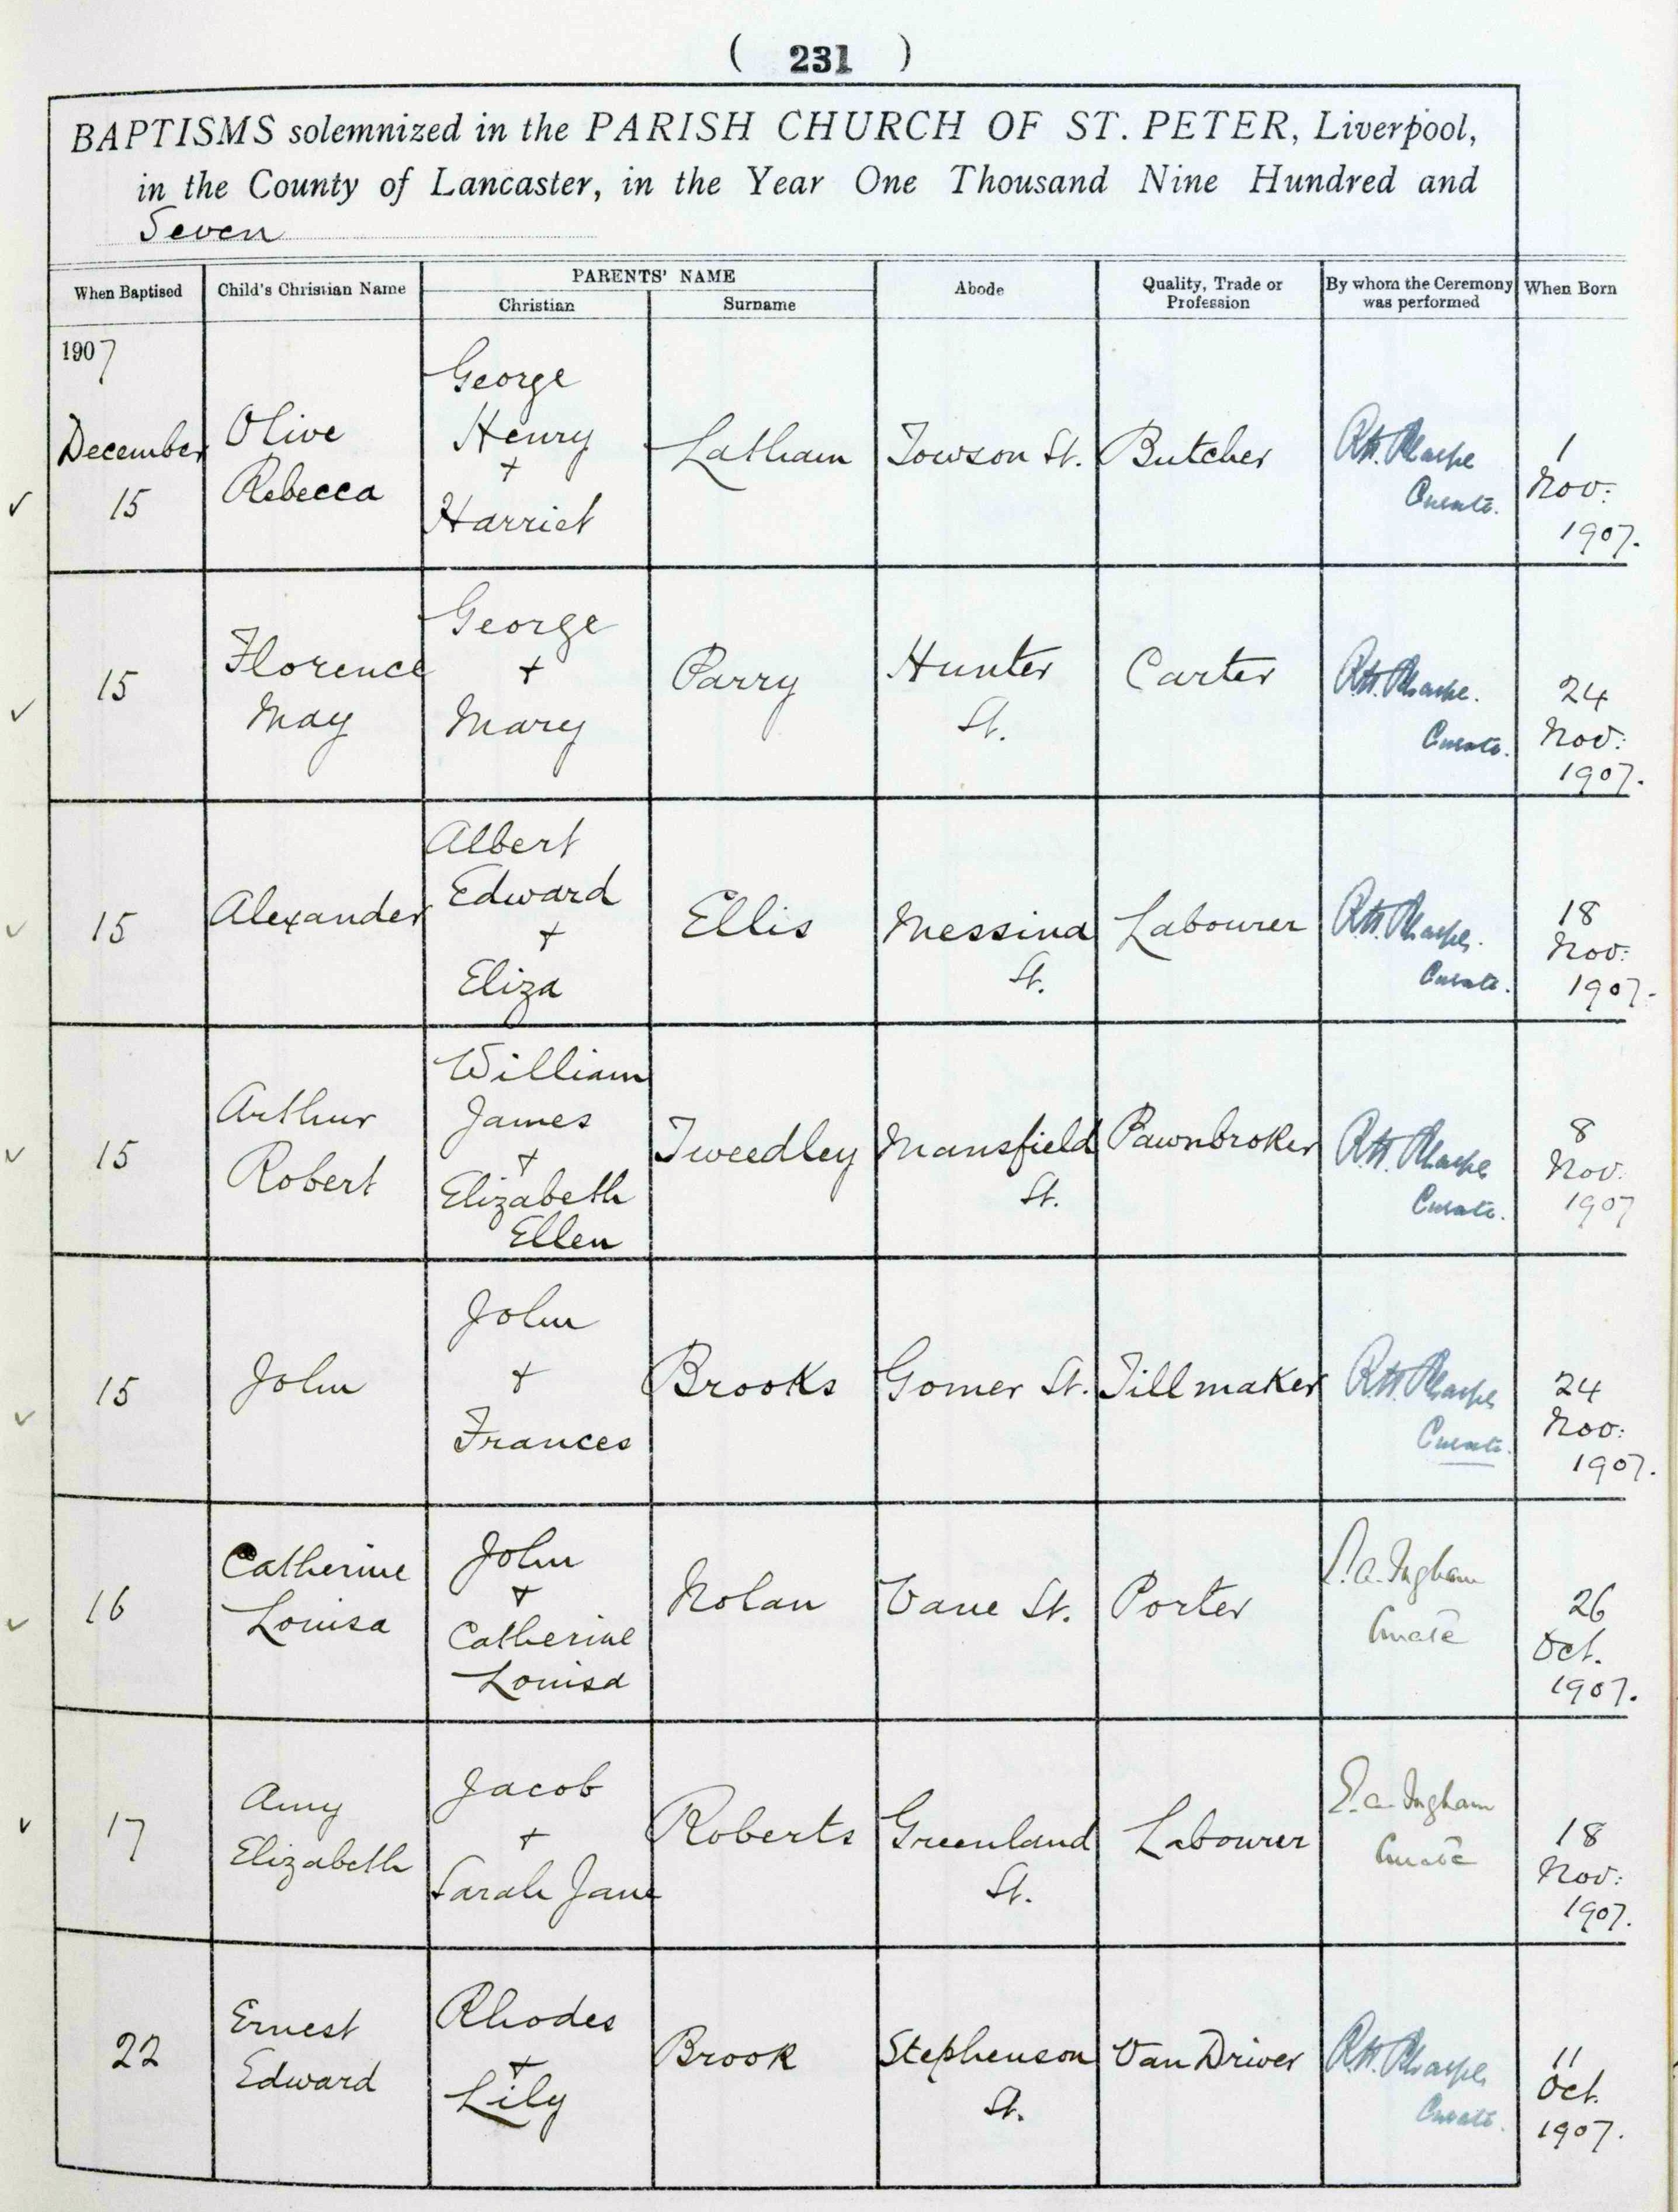 ( 231 )
BAPTISMS solemnized in the PARISH CHURCH OF ST. PETER, Liverpool,
in the County of Lancaster, in the Year One Thousand Nine Hundred and
Seven
When Baptised
Child's Christian Name
PARENTS' NAME
Christian
Surname
Abode
Quality, Trade or
Profession
By whom the Ceremony
was performed
When Born
1907
December
15
Olive
Rebecca
George
Henry
+
Harriet
Latham
Towson St.
Butcher
Curate.
1
Nov:
1907.
15
Florence
May
George
+
Mary
Parry
Hunter
St.
Carter
Curate.
24
Nov:
1907.
15
Alexander
Albert
Edward
+
Eliza
Ellis
Messina
St.
Labourer
Curate.
18
Nov:
1907.
15
Arthur
Robert
William
James
+
Elizabeth
Ellen
Tweedley
Mansfield
St.
Pawnbroker
Curate.
8
Nov.
1907
15
John
John
+
Frances
Brooks
Gomer St.
Tillmaker
Curate.
24
Nov:
1907.
16
Catherine
Louisa
John
+
Catherine
Louisa
Nolan
Vane St.
Porter
Ingham
Curate
26
Oct.
1907.
17
Amy
Elizabeth
Jacob
+
Sarah Jane
Roberts
Greenland
St.
Labourer
E.a. Ingham
Curate
18
Nov:
1907.
22
Ernest
Edward
Rhodes
+
Lily
Brook
Stephenson
St.
Van Driver
Curate.
11
Oct.
1907.